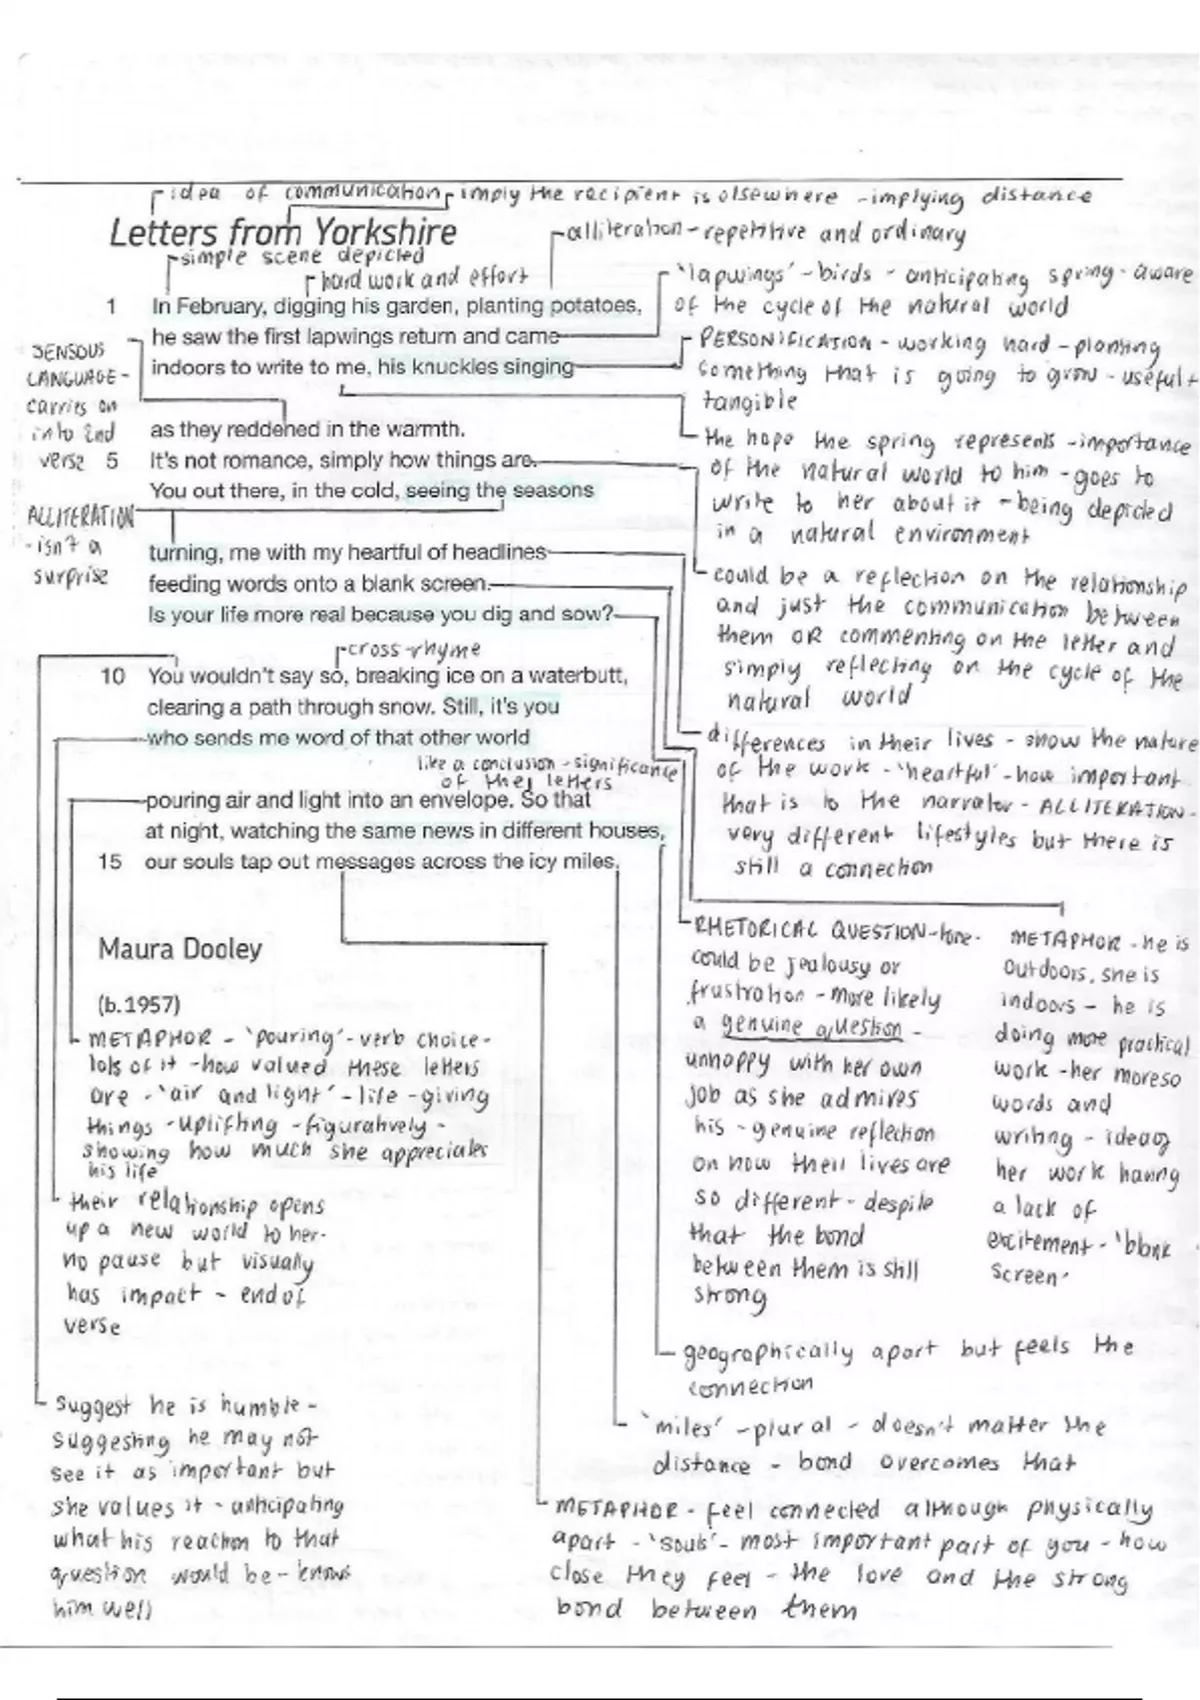 idea of communication - imply the recipient is elsewhere - implying distance
Letters from Yorkshire
alliteration - repetitive and ordinary
simple scene depicted
hard work and effort
'lapwings' - birds - anticipating spring - aware
of the cycle of the natural world
1 In February, digging his garden, planting potatoes,
he saw the first lapwings return and came
indoors to write to me, his knuckles singing
PERSONIFICATION - working hard - planting
something that is going to grow - useful +
tangible
SENSOUS
LANGUAGE -
carries on
into 2nd
verse
as they reddened in the warmth.
5 It's not romance, simply how things are.
You out there, in the cold, seeing the seasons
the hope the spring represents - importance
of the natural world to him - goes to
write to her about it - being depicted
in a natural environment
ALLITERATION
- isn't a
surprise
turning, me with my heartful of headlines
feeding words onto a blank screen.
Is your life more real because you dig and sow?
could be a reflection on the relationship
and just the communication between
them OR commenting on the letter and
simply reflecting on the cycle of the
natural world
cross-rhyme
10 You wouldn't say so, breaking ice on a waterbutt,
clearing a path through snow. Still, it's you
who sends me word of that other world
differences in their lives - show the nature
of the work - 'heartful' - how important
that is to the narrator - ALLITERATION -
very different lifestyles but there is
still a connection
like a conclusion - significance
of the letters
pouring air and light into an envelope. So that
at night, watching the same news in different houses,
15 our souls tap out messages across the icy miles.
Maura Dooley
(b.1957)
RHETORICAL QUESTION - tone -
could be jealousy or
frustration - more likely
a genuine question -
unhappy with her own
job as she admires
his - genuine reflection
on how their lives are
so different - despite
that the bond
between them is still
strong
METAPHOR - he is
outdoors, she is
indoors - he is
doing more practical
work - her moreso
words and
writing - idea of
her work having
a lack of
excitement - 'blank
screen'
METAPHOR - 'pouring' - verb choice -
lots of it - how valued these letters
are - 'air and light' - life - giving
things - uplifting - figuratively -
showing how much she appreciates
his life
their relationship opens
up a new world to her -
no pause but visually
has impact - end of
verse
geographically apart but feels the
connection
suggest he is humble -
suggesting he may not
see it as important but
she values it - anticipating
what his reaction to that
question would be - knows
him well
'miles' - plural - doesn't matter the
distance - bond overcomes that
METAPHOR - feel connected although physically
apart - 'souls' - most important part of you - how
close they feel - the love and the strong
bond between them